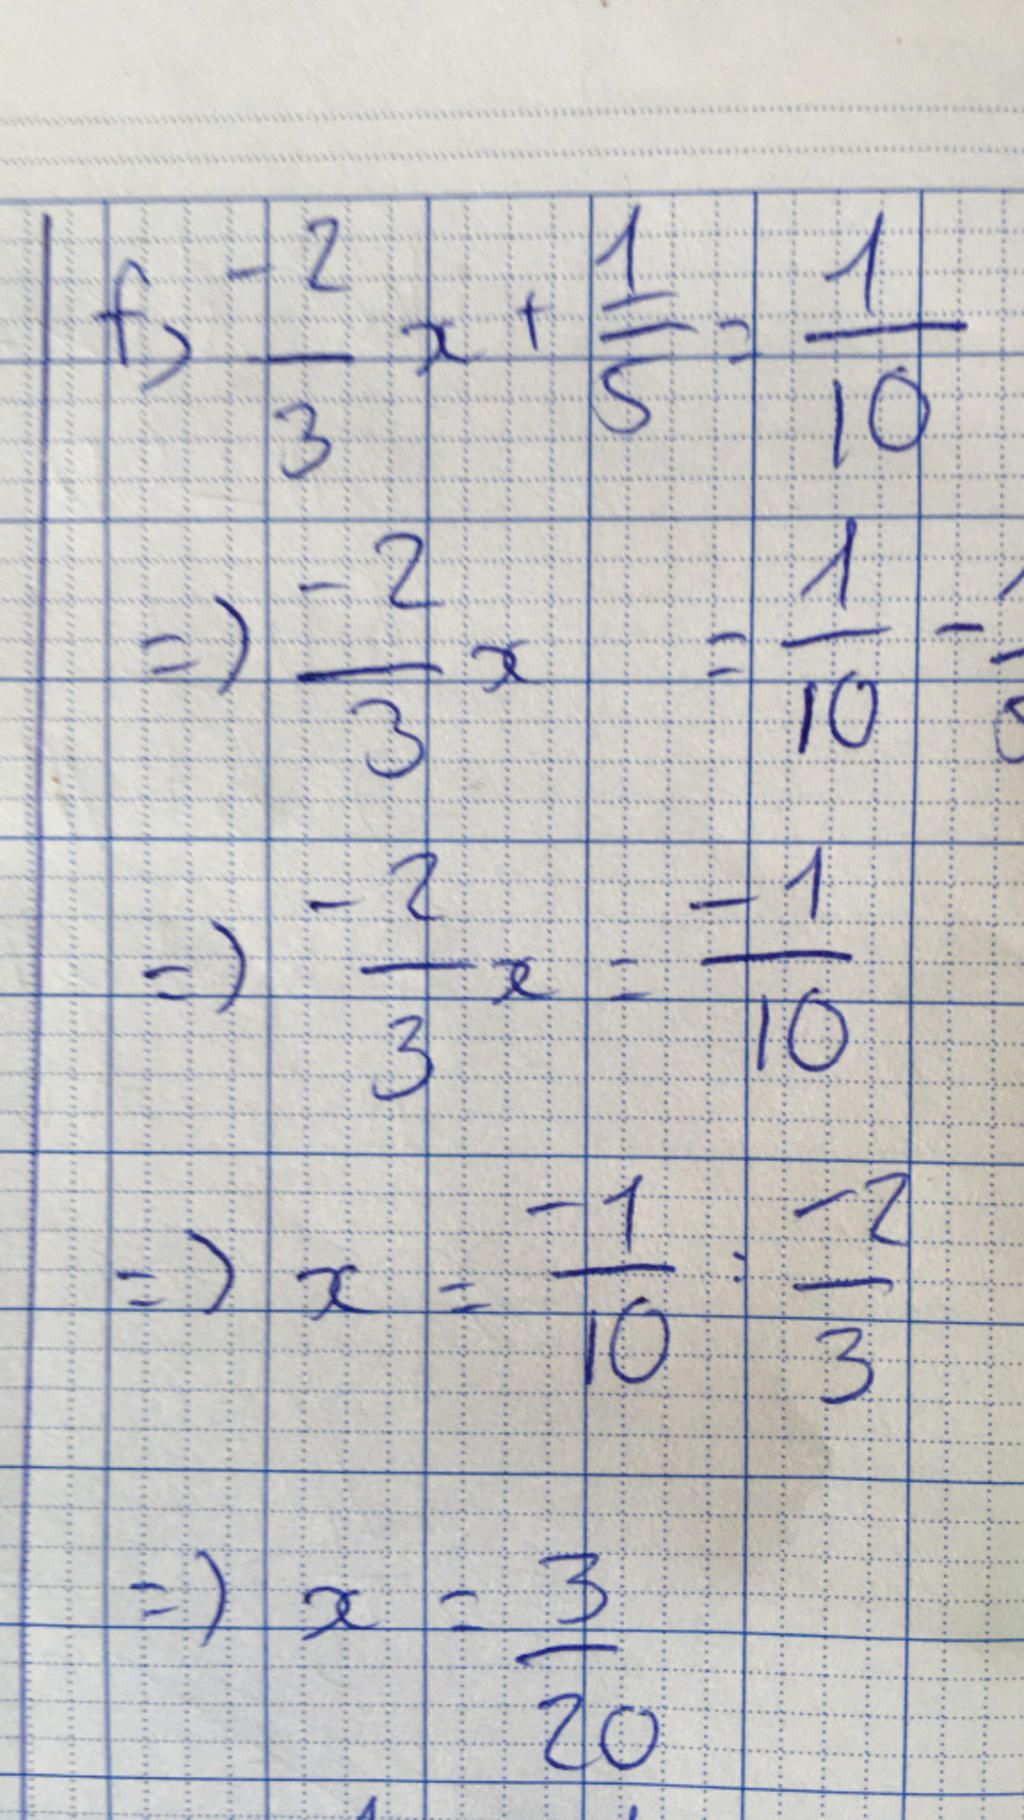 f) -2/3 x + 1/5 = 1/10
=) -2/3 x = 1/10 -
=) -2/3 x = -1/10
=) x = -1/10 : -2/3
=) x = 3/20